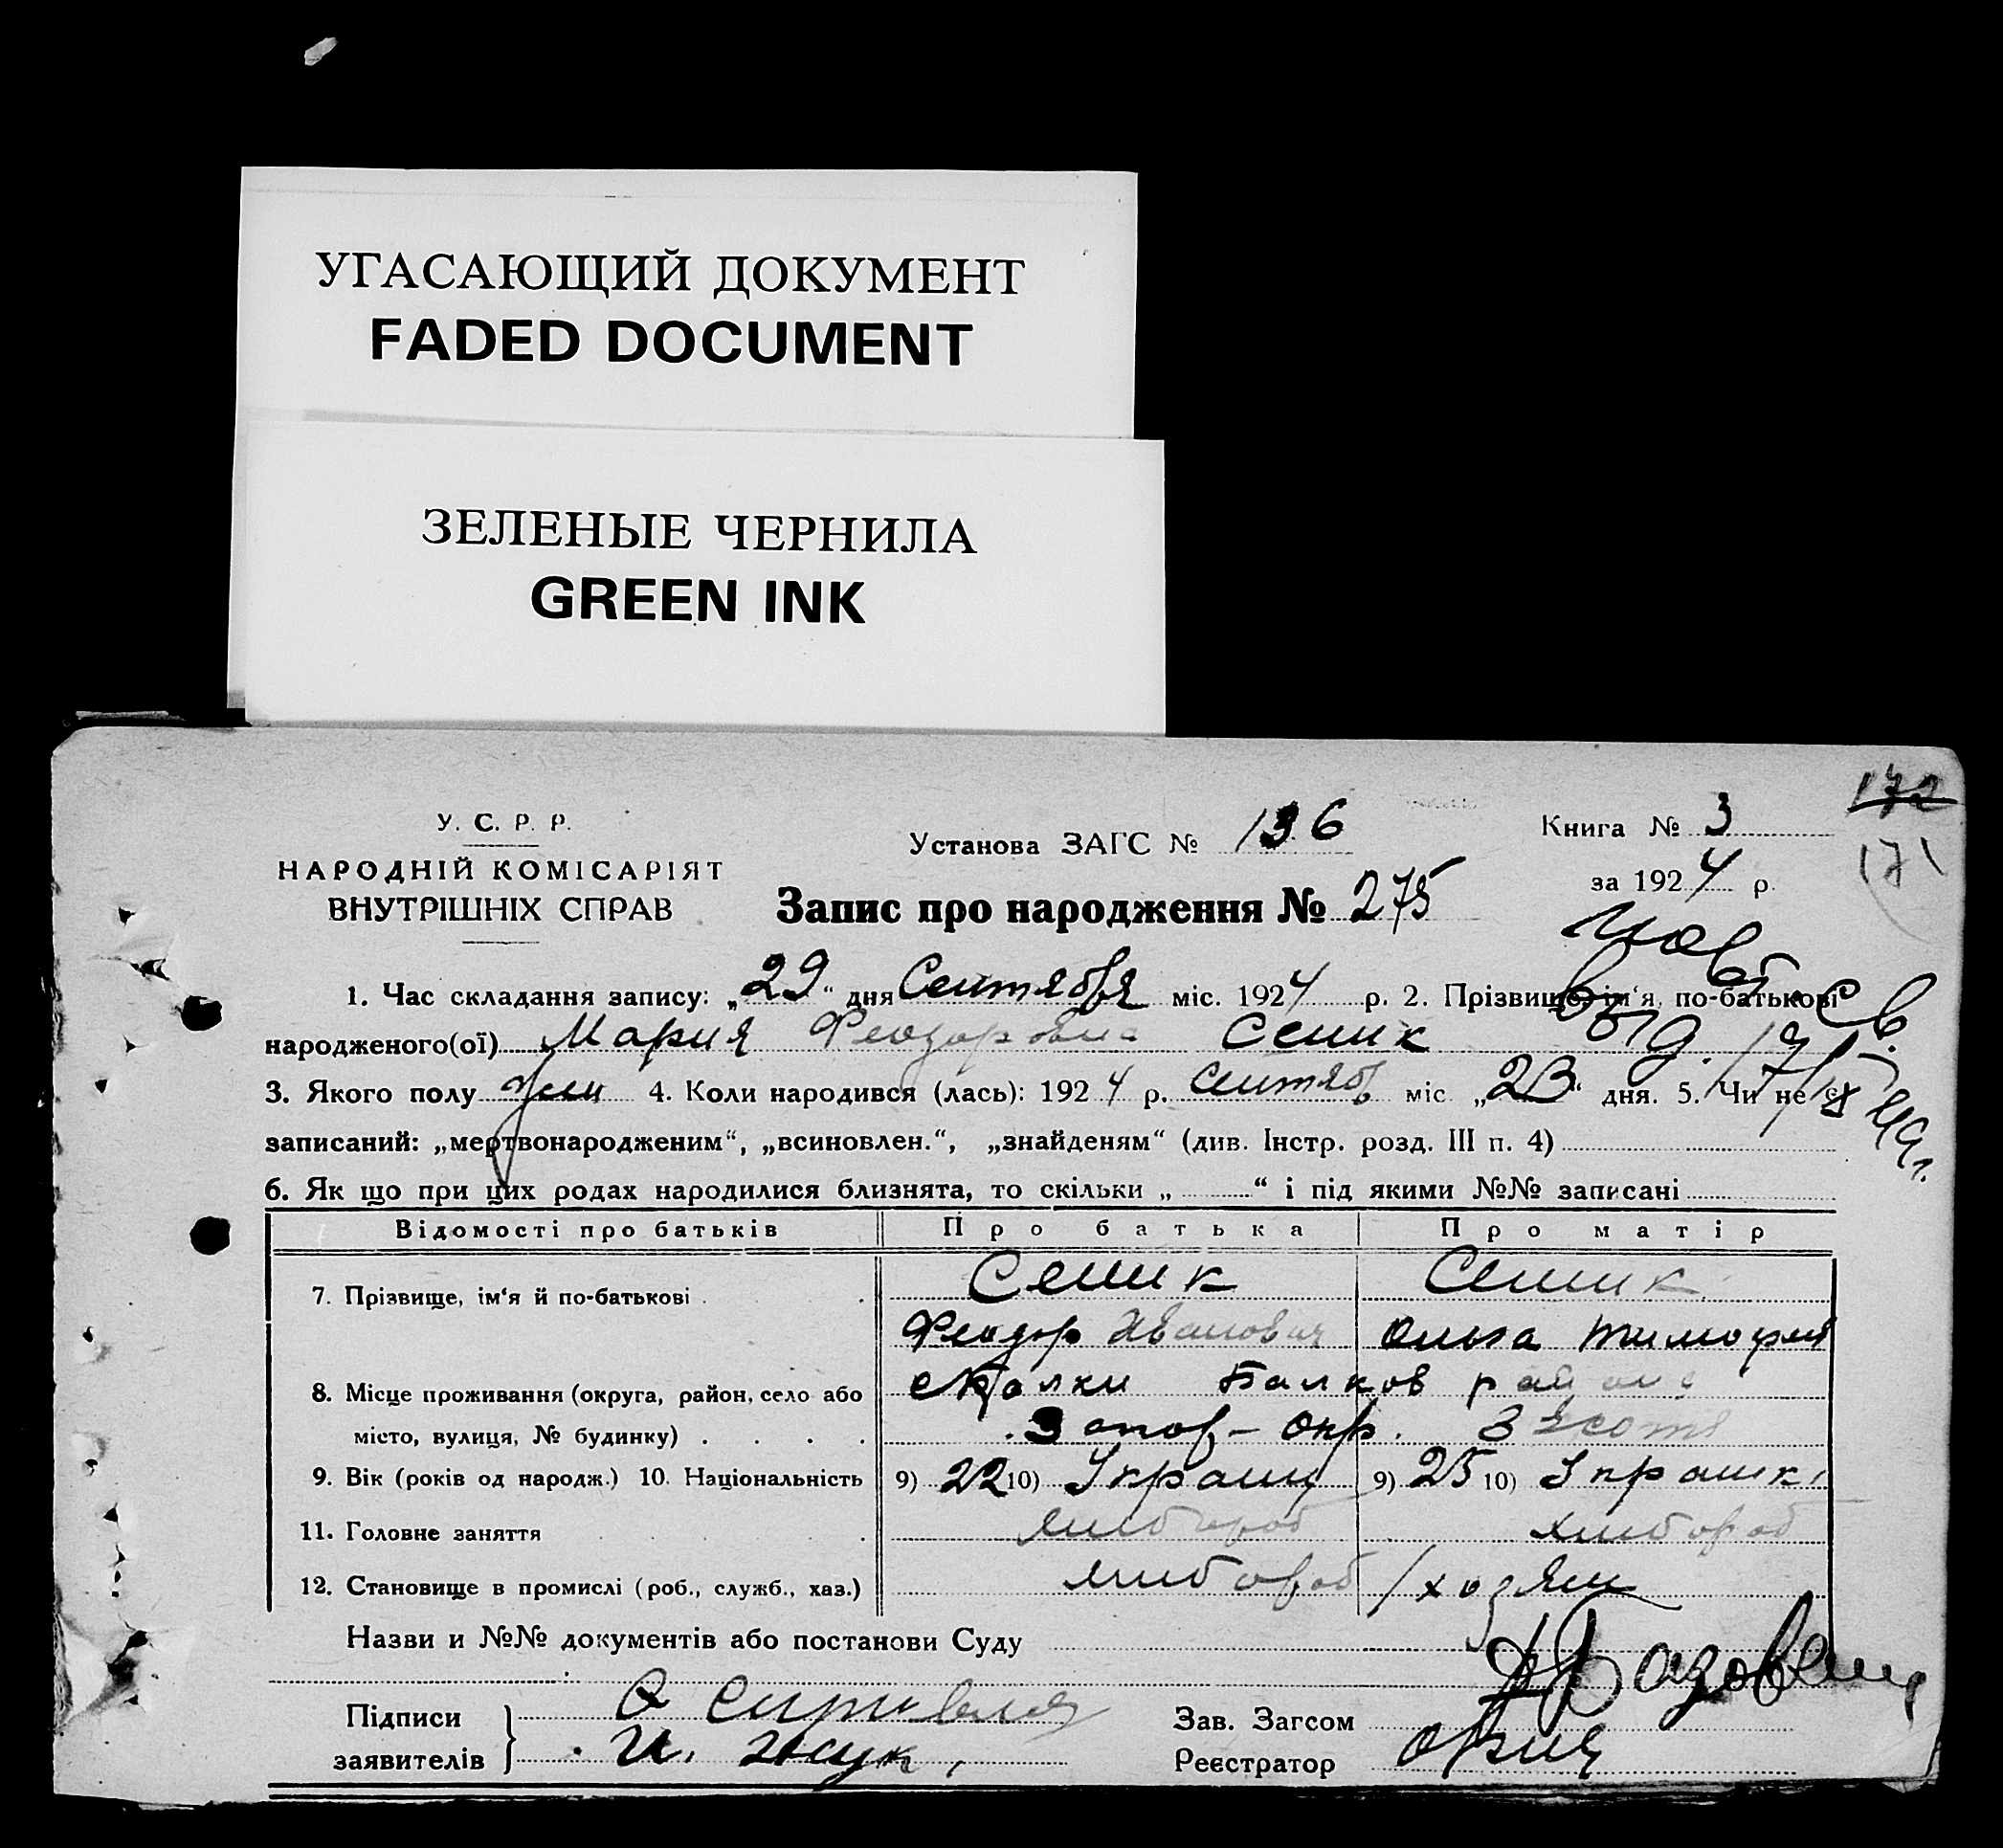 УГАСАЮЩИЙ ДОКУМЕНТ
FADED DOCUMENT
ЗЕЛЕНЫЕ ЧЕРНИЛА
GREEN INK
172
171
У. С. Р. Р.
НАРОДНІЙ КОМІСАРІЯТ
ВНУТРІШНІХ СПРАВ
Установа ЗАГС № 136
Книга № 3
за 1924 р.
Запис про народження № 275
1. Час складання запису: „29“ дня Сентября міс. 1924 р. 2. Прізвище, ім‘я, по-батькові
народженого(ої) Мария Феодоровна Сеник
3. Якого полу жен 4. Коли народився (лась): 1924 р. Сентяб міс. „23“ дня. 5. Чи не є
записаний: „мертвонародженим“, „всиновлен.“, „знайденям“ (див. Інстр. розд. III п. 4)
6. Як що при цих родах народилися близнята, то скільки „ “ і під якими №№ записані
Відомості про батьків Про батька Про матір
7. Прізвище, ім‘я й по-батькові Сеник Сеник
Феодор Иванович Ольга Тимофей
8. Місце проживання (округа, район, село або Балки Балков район
місто, вулиця, № будинку) Запор-Окр. 3
9. Вік (років од народж.) 10. Національність 9) 22 10) Украин 9) 25 10) Украинк
11. Головне заняття хлибороб хлибороб
12. Становище в промислі (роб., служб., хаз.) хлибороб / хозяин
Назви и №№ документів або постанови Суду
Підписи
заявителів
И. Жук
Зав. Загсом
Реєстратор